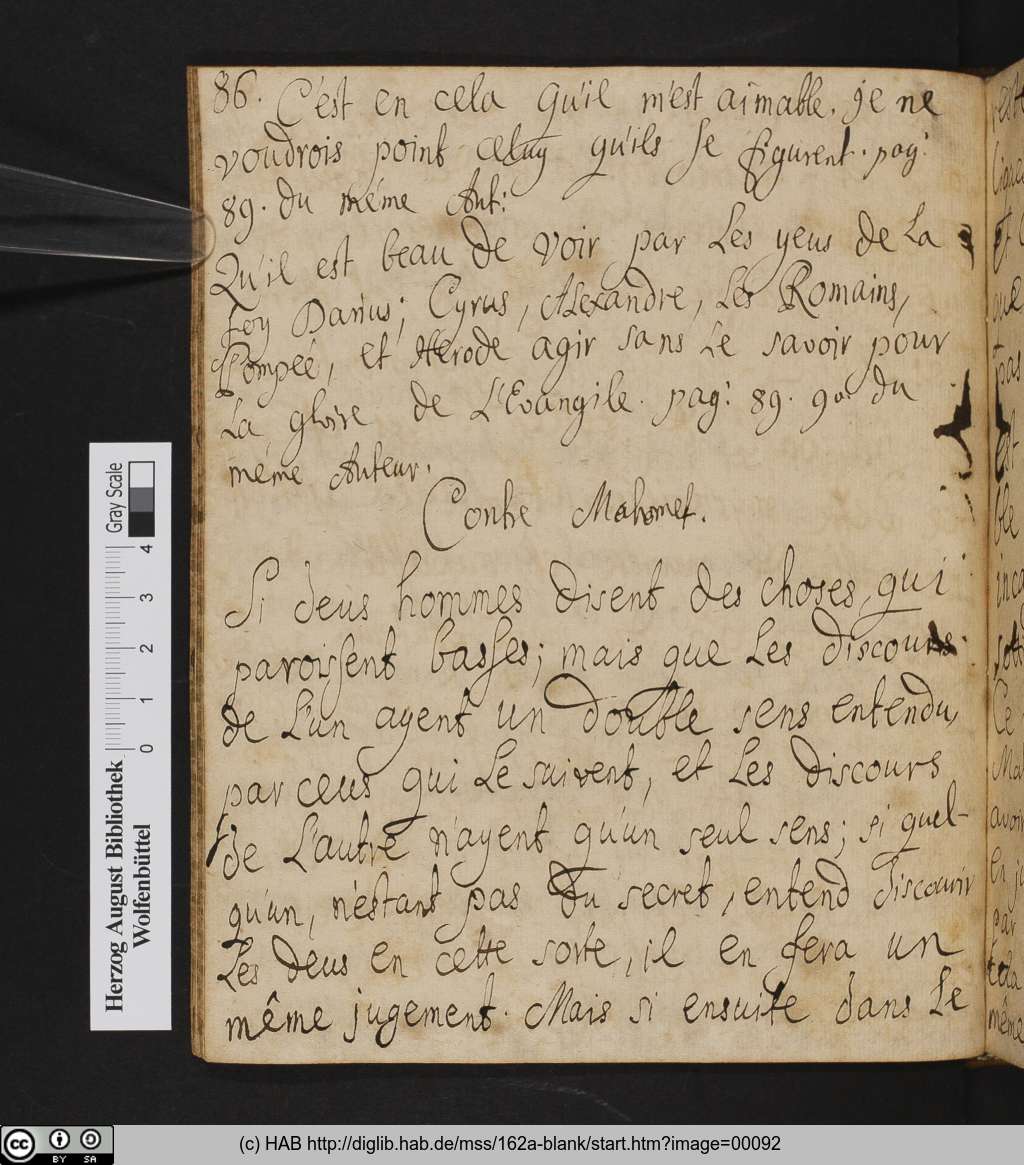 86. C'est en cela qu'il m'est aimable. je ne
voudrois point celuy qu'ils se figurent. pag:
89. du même Aut:
Qu'il est beau de voir par les yeus de la
foy Darius; Cyrus, Alexandre, les Romains,
Pompeé, et Herode agir sans le savoir pour
la gloire de L'Evangile. pag: 89. 90. du
même Auteur.
Contre Mahomet.
Si deus hommes disent des choses, qui
paroissent basses; mais que les discours
de l'un ayent un double sens entendu,
par ceus qui le suivent, et les discours
de l'autre n'ayent qu'un seul sens; si quel-
qu'un, n'éstant pas du secret, entend discourir
les deus en cette sorte, il en fera un
même jugement. Mais si ensuite dans le
Gray Scale
0 1 2 3 4
Herzog August Bibliothek
Wolfenbüttel
cc BY SA
(c) HAB http://diglib.hab.de/mss/162a-blank/start.htm?image=00092